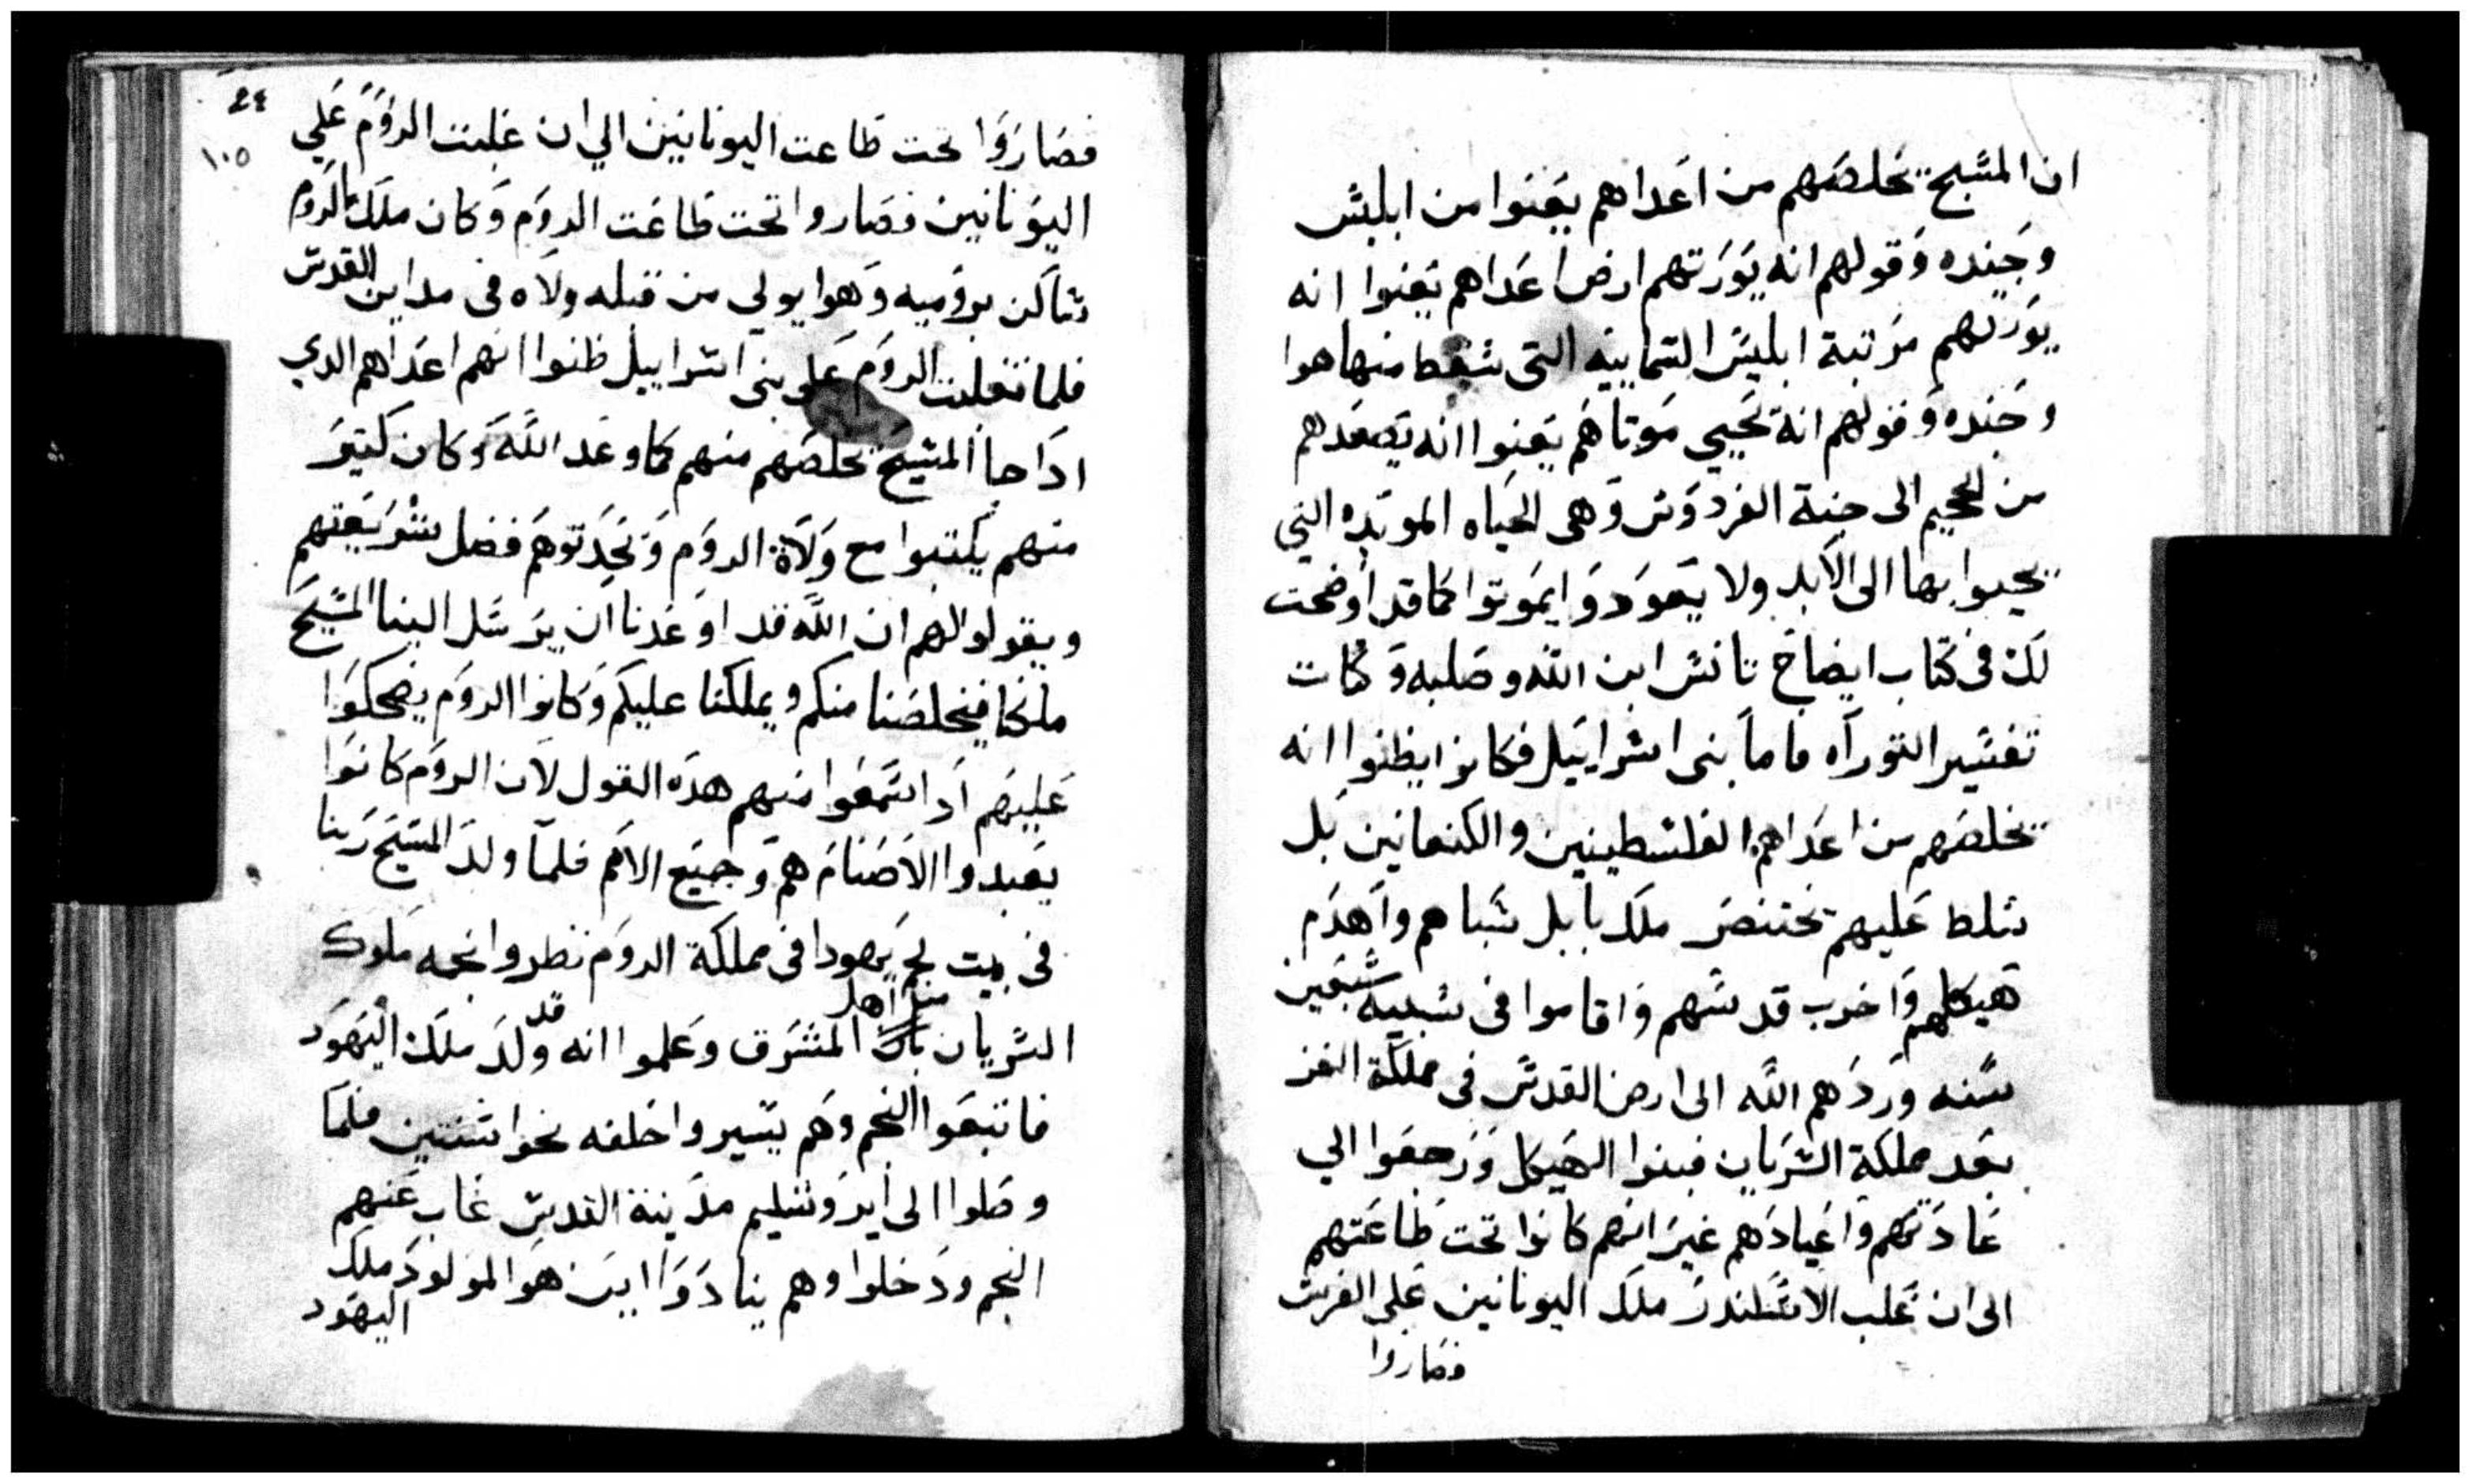 ان المسيح يخلصهم من اعداهم يعنوا من ابليس
وجنده وقولهم انه يورتهم ارض اعداهم يعنوا انه
يورتهم مرتبة ابليس السماييه التى سقط منها هوا
وجنده وقولهم انه يحيي موتاهم يعنوا انه يصعدهم
من الجحيم الى جنة الفردوس وهى الحياه الموبده التي
يحيوا بها الى الابد ولا يعودوا يموتوا كما قد اوضحت
لك فى كتاب ايضاح تانس ابن الله وصلبه وكتاب
تفسير التوراه فاما بنى اسراييل فكانوا يظنوا انه
يخلصهم من اعداهم الفلسطينين والكنعانين بل
سلط عليهم بختنصر ملك بابل سباهم واهدم
هيكلهم واخرب قدسهم واقاموا فى سبيه سبعين
سنه وردهم الله الى ارض القدس فى مملكة الفرس
بعد مملكة السريان فبنوا الهيكل ورجعوا الي
عادتهم واعيادهم غير انهم كانوا تحت طاعتهم
الى ان غلب الاسكندر ملك اليونانين على الفرس
فصاروا
٢٤
١٠٥
فصاروا تحت طاعت اليونانين الي ان غلبت الروم علي
اليونانين فصاروا تحت طاعت الروم وكان ملك الروم
ساكن بروميه وهوا يولي من قبله ولاه فى مداين القدس
فلما تغلبت الروم على بنى اسراييل ظنوا انهم اعداهم الدي
ادا جا المسيح يخلصهم منهم كما وعد الله وكان كتير
منهم يكتبوا مع ولاة الروم ويحدتوهم فضل شريعتهم
ويقولوا لهم ان الله قد اوعدنا ان يرسل الينا المسيح
ملكا فيخلصنا منكم ويملكنا عليكم وكانوا الروم يضحكوا
عليهم ادا سمعوا منهم هده القول لان الروم كانوا
يعبدوا الاصنام هم وجميع الامم فلما ولد المسيح ربنا
فى بيت لحم يهودا فى مملكة الروم نظروا نجمه ملوك
السريان من اهل المشرق وعلموا انه قد ولد ملك اليهود
فاتبعوا النجم وهم يسيروا خلفه نحوا سنتين فلما
وصلوا الى ايروشليم مدينة القدس غاب عنهم
النجم ودخلوا وهم ينادوا اين هو المولود ملك
اليهود